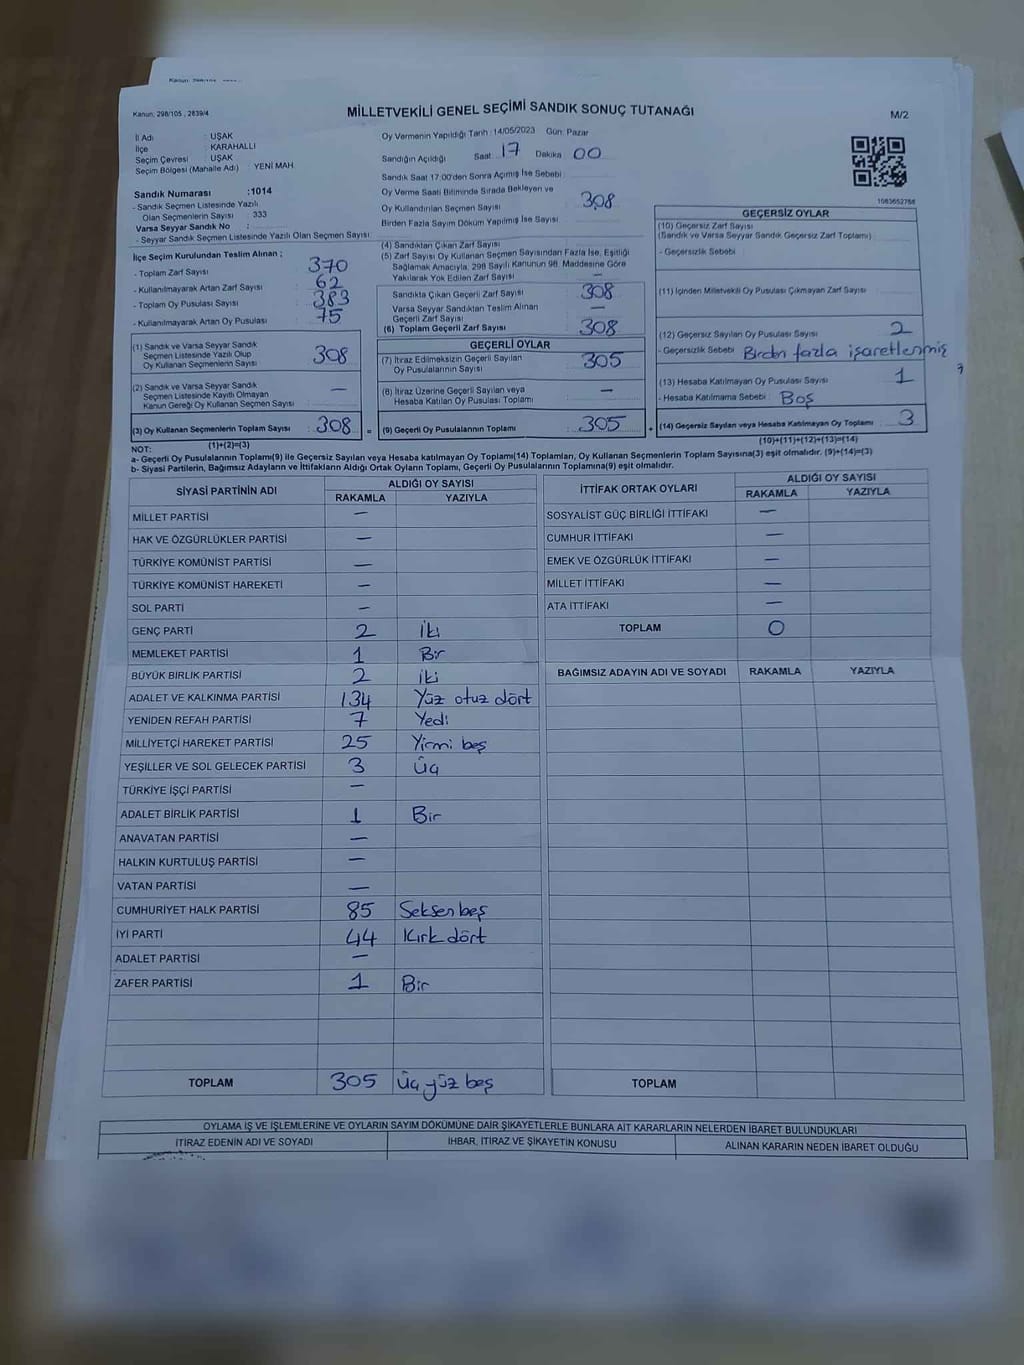 Kanun; 298/105 , 2839/4
MİLLETVEKİLİ GENEL SEÇİMİ SANDIK SONUÇ TUTANAĞI
M/2
İl Adı : UŞAK
İlçe : KARAHALLI
Seçim Çevresi : UŞAK
Seçim Bölgesi (Mahalle Adı) : YENİ MAH.
Oy Vermenin Yapıldığı Tarih :14/05/2023 Gün: Pazar
Sandığın Açıldığı Saat: 17 Dakika 00
Sandık Saat 17:00'den Sonra Açılmış İse Sebebi
Sandık Numarası :1014
- Sandık Seçmen Listesinde Yazılı
Olan Seçmenlerin Sayısı : 333
Varsa Seyyar Sandık No :
- Seyyar Sandık Seçmen Listesinde Yazılı Olan Seçmen Sayısı:
Oy Verme Saati Bitiminde Sırada Bekleyen ve
Oy Kullandırılan Seçmen Sayısı 308
Birden Fazla Sayım Döküm Yapılmış İse Sayısı
1083652768
İlçe Seçim Kurulundan Teslim Alınan ;
- Toplam Zarf Sayısı : 370
- Kullanılmayarak Artan Zarf Sayısı : 62
- Toplam Oy Pusulası Sayısı : 383
- Kullanılmayarak Artan Oy Pusulası : 75
(1) Sandık ve Varsa Seyyar Sandık
Seçmen Listesinde Yazılı Olup
Oy Kullanan Seçmenlerin Sayısı : 308
(2) Sandık ve Varsa Seyyar Sandık
Seçmen Listesinde Kayıtlı Olmayan
Kanun Gereği Oy Kullanan Seçmen Sayısı : —
(3) Oy Kullanan Seçmenlerin Toplam Sayısı : 308
(1)+(2)=(3)
(4) Sandıktan Çıkan Zarf Sayısı
(5) Zarf Sayısı Oy Kullanan Seçmen Sayısından Fazla İse, Eşitliği
Sağlamak Amacıyla, 298 Sayılı Kanunun 98. Maddesine Göre
Yakılarak Yok Edilen Zarf Sayısı —
Sandıkta Çıkan Geçerli Zarf Sayısı 308
Varsa Seyyar Sandıktan Teslim Alınan
Geçerli Zarf Sayısı —
(6) Toplam Geçerli Zarf Sayısı 308
GEÇERLİ OYLAR
(7) İtiraz Edilmeksizin Geçerli Sayılan
Oy Pusulalarının Sayısı 305
(8) İtiraz Üzerine Geçerli Sayılan veya
Hesaba Katılan Oy Pusulası Toplamı —
= (9) Geçerli Oy Pusulalarının Toplamı 305
GEÇERSİZ OYLAR
(10) Geçersiz Zarf Sayısı
(Sandık ve Varsa Seyyar Sandık Geçersiz Zarf Toplamı)
- Geçersizlik Sebebi
(11) İçinden Milletvekili Oy Pusulası Çıkmayan Zarf Sayısı
(12) Geçersiz Sayılan Oy Pusulası Sayısı 2
- Geçersizlik Sebebi Birden fazla işaretlenmiş
(13) Hesaba Katılmayan Oy Pusulası Sayısı 1
- Hesaba Katılmama Sebebi : Boş
+ (14) Geçersiz Sayılan veya Hesaba Katılmayan Oy Toplamı 3
(10)+(11)+(12)+(13)=(14)
NOT:
a- Geçerli Oy Pusulaları Toplamı(9) ile Geçersiz Sayılan veya Hesaba katılmayan Oy Toplamı(14) Toplamları, Oy Kullanan Seçmenlerin Toplam Sayısına(3) eşit olmalıdır. (9)+(14)=(3)
b- Siyasi Partilerin, Bağımsız Adayların ve İttifakların Aldığı Ortak Oyların Toplamı, Geçerli Oy Pusulalarının Toplamına(9) eşit olmalıdır.
SİYASİ PARTİNİN ADI ALDIĞI OY SAYISI
RAKAMLA YAZIYLA
MİLLET PARTİSİ —
HAK VE ÖZGÜRLÜKLER PARTİSİ —
TÜRKİYE KOMÜNİST PARTİSİ —
TÜRKİYE KOMÜNİST HAREKETİ —
SOL PARTİ —
GENÇ PARTİ 2 İki
MEMLEKET PARTİSİ 1 Bir
BÜYÜK BİRLİK PARTİSİ 2 iki
ADALET VE KALKINMA PARTİSİ 134 Yüz otuz dört
YENİDEN REFAH PARTİSİ 7 Yedi
MİLLİYETÇİ HAREKET PARTİSİ 25 Yirmi beş
YEŞİLLER VE SOL GELECEK PARTİSİ 3 üç
TÜRKİYE İŞÇİ PARTİSİ —
ADALET BİRLİK PARTİSİ 1 Bir
ANAVATAN PARTİSİ —
HALKIN KURTULUŞ PARTİSİ —
VATAN PARTİSİ —
CUMHURİYET HALK PARTİSİ 85 Seksen beş
İYİ PARTİ 44 Kırk dört
ADALET PARTİSİ —
ZAFER PARTİSİ 1 Bir
TOPLAM 305 üç yüz beş
İTTİFAK ORTAK OYLARI ALDIĞI OY SAYISI
RAKAMLA YAZIYLA
SOSYALİST GÜÇ BİRLİĞİ İTTİFAKI —
CUMHUR İTTİFAKI —
EMEK VE ÖZGÜRLÜK İTTİFAKI —
MİLLET İTTİFAKI —
ATA İTTİFAKI —
TOPLAM 0
BAĞIMSIZ ADAYIN ADI VE SOYADI RAKAMLA YAZIYLA
TOPLAM
OYLAMA İŞ VE İŞLEMLERİNE VE OYLARIN SAYIM DÖKÜMÜNE DAİR ŞİKAYETLERLE BUNLARA AİT KARARLARIN NELERDEN İBARET BULUNDUKLARI
İTİRAZ EDENİN ADI VE SOYADI İHBAR, İTİRAZ VE ŞİKAYETİN KONUSU ALINAN KARARIN NEDEN İBARET OLDUĞU